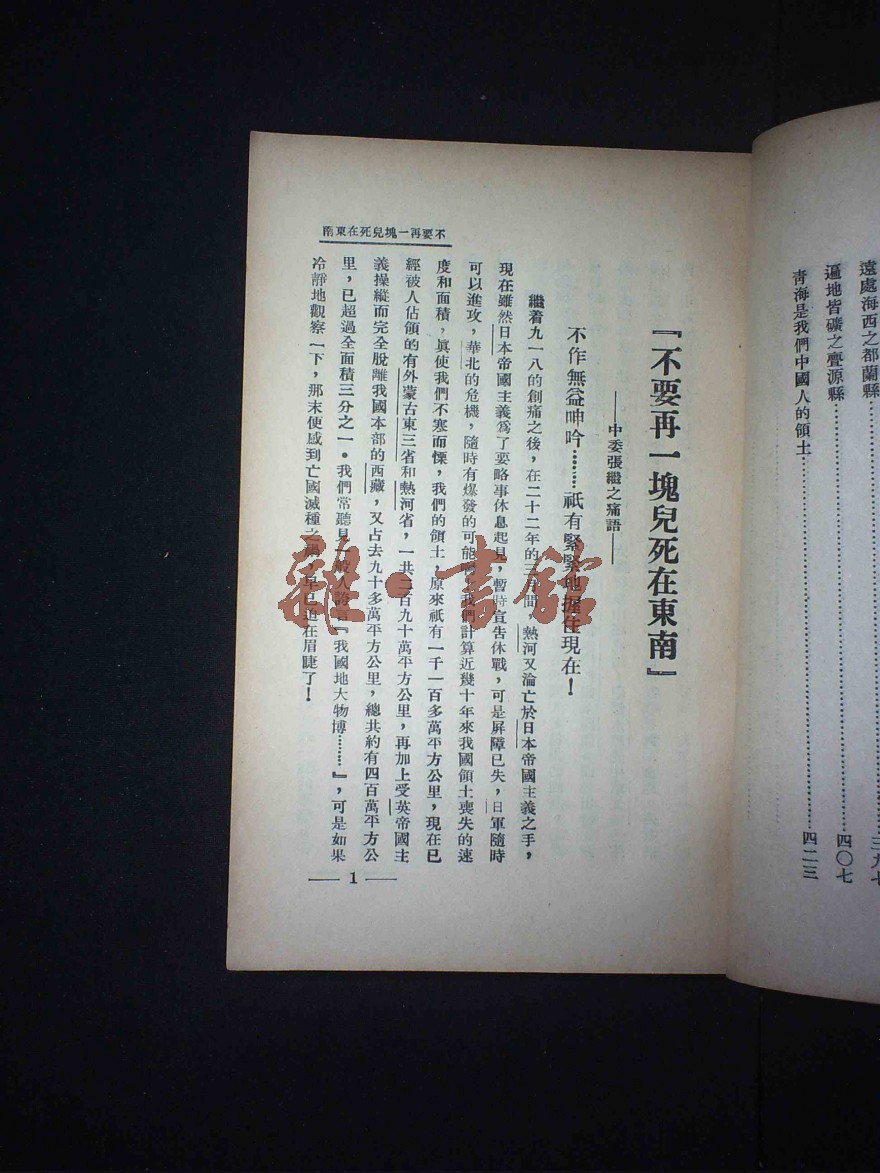 遠處海西之都蘭縣……三九七
遍地皆礦之亹源縣……四〇七
青海是我們中國人的領土……四二三
不要再一塊兒死在東南
『不要再一塊兒死在東南』
——中委張繼之痛語——
不作無益呻吟……祇有緊緊地握住現在！
繼着九一八的創痛之後，在二十二年的三月間，熱河又淪亡於日本帝國主義之手，
現在雖然日本帝國主義爲了要略事休息起見，暫時宣告休戰，可是屏障已失，日軍隨時
可以進攻，華北的危機，隨時有爆發的可能啊，我們計算近幾十年來我國領土喪失的速
度和面積，眞使我們不寒而慄，我們的領土，原來祇有一千一百多萬平方公里，現在已
經被人佔領的有外蒙古東三省和熱河省，一共二百九十萬平方公里，再加上受英帝國主
義操縱而完全脫離我國本部的西藏，又占去九十多萬平方公里，總共約有四百萬平方公
里，已超過全面積三分之一。我們常聽見一般人誇言『我國地大物博……』，可是如果
冷靜地觀察一下，那末便感到亡國滅種之禍，早已迫在眉睫了！
1
雜·書館